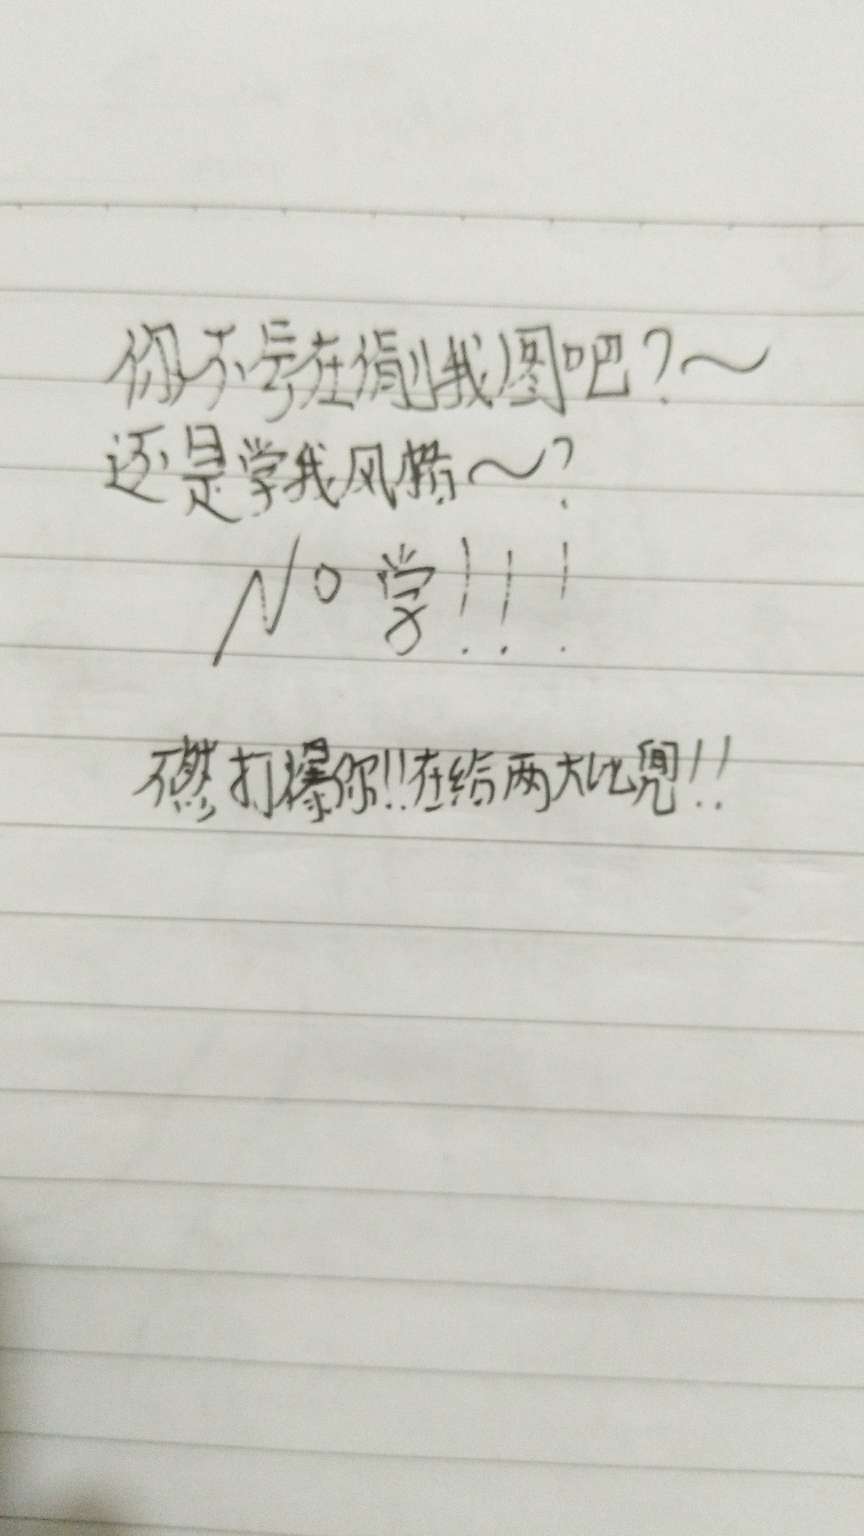 你不亏在偷我图吧?～
还是学我风格～?
NO学!!!
不然打爆你!!在给两大比兜!!